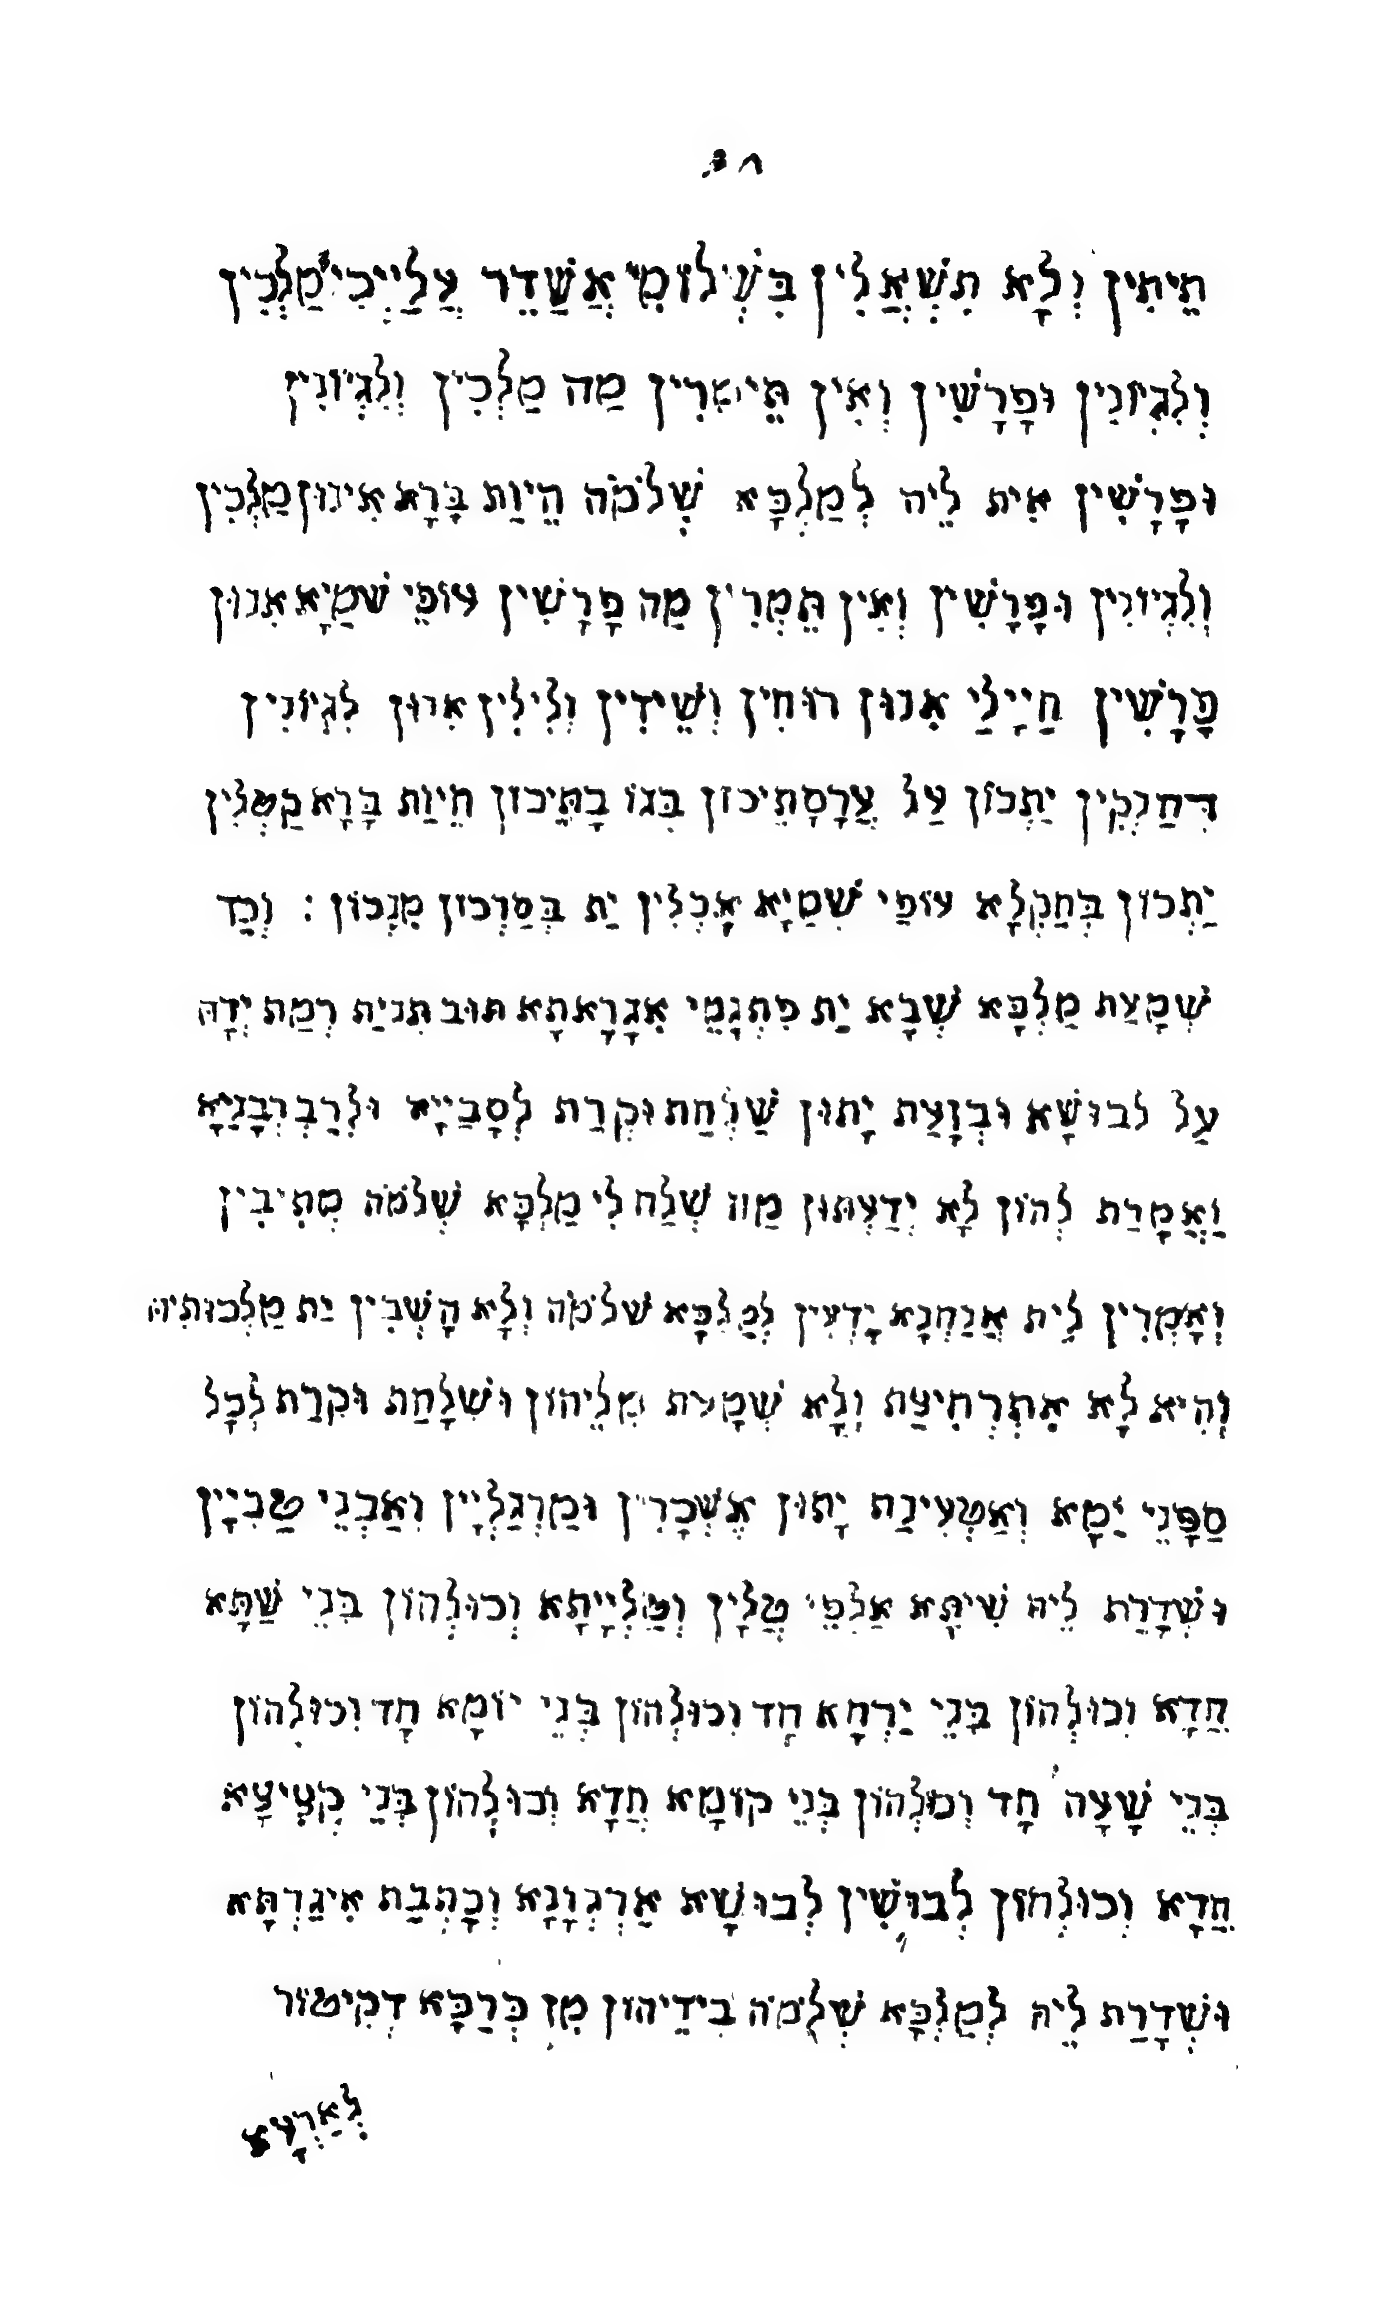 תֵיתִין וְלָא תִשְׁאֲלִין בִּשְׁילוֹמִי אֲשַׁדֵר עֲלַיְיכִי מַלְכִין
וְלִגְיוֹנִין וּפָרָשִׁין וְאִין תֵּימְרִין מַה מַלְכִין וְלִגְיוֹנִין
וּפָרָשִׁין אִית לֵיה לְמַלְכָּא שְׁלֹמֹה הֵיוַת בָּרָא אִינוּן מַלְכִין
וְלִגְיוֹנִין וּפָרָשִׁין וְאִין תֵּמְרִין מַה פָרָשִׁין עוֹפֵי שְׁמַיָא אִנוּן
פָּרָשִׁין חַיָילַי אִנוּן רוּחִין וְשֵׁידִין וְלִילִין אִנוּן לִגְיוֹנִין
דְּחַנְקִין יַתְכוֹן עַל עֲרָסָתֵיכוֹן בְּגוֹ בָתֵּיכוֹן חֵיוַת בָּרָא קַטְלִין
יַתְכוֹן בְּחַקְלָא עוֹפַי שְׁמַיָא אָכְלִין יַת בְּסַרְכוֹן מִנְכוֹן : וְכַד
שְׁמָעַת מַלְכָּא שְׁבָא יַת פִּתְגָמֵי אִגָרָאתָא תּוּב תִּנְיַת רְמַת יְדָה
עַל לבוּשָׁא וּבְזָעַת יָתוּן שַׁלְחַת וּקְרַת לְסָבַיָיא וּלְרַבְרְבָנַיָא
וַאֲמָרַת לְהוֹן לָא יְדַעְתּוּן מַה שְׁלַח לִי מַלְכָּא שְׁלֹמֹה מְתִיבִין
וְאָמְרִין לֵית אֲנַחְנָא יָדְעִין לְמַלְכָּא שְׁלֹמֹה וְלָא הָשְׁבִין יַת מַלְכוּתֵיהּ
וְהִיא לָא אִתְרְחִיצַת וְלָא שְׁמָעַת מִלֵיהוֹן וּשְׁלָחַת וּקְרַת לְכָל
סַפָּנֵי יַמָא וְאַטְעִינַת יָתוּן אֶשְׁכָּרִין וּמַרְגַלְיָין וְאַבְנֵי טַבִיָין
וּשְׁדָרַת לֵיהּ שִׁיתָּא אַלְפֵי טַלָין וְטַלְיָיתָא וְכוּלְהוֹן בְּנֵי שַׁתָּא
חֲדָא וְכוּלְהוֹן בְּנֵי יַרְחָא חָד וְכוּלְהוֹן בְּנֵי יוֹמָא חָד וְכוּלְהוֹן
בְּנֵי שָׁעָה חָד וְכולְהוֹן בְּנֵי קוֹמָא חֲדָא וְכוּלְהוֹן בְּנֵי קְצִיצָא
חֲדָא וְכוּלְהוֹן לְבוּשִׁין לְבוּשָׁא אַרְגְוָנָא וְכָתְבַת אִיגַרְתָּא
וּשְׁדָרַת לֵיהּ לְמַלְכָּא שְׁלֹמֹה בִידֵיהוֹן מִן כְּרַכָּא דְקִיטוֹר
לְאַרְעָא